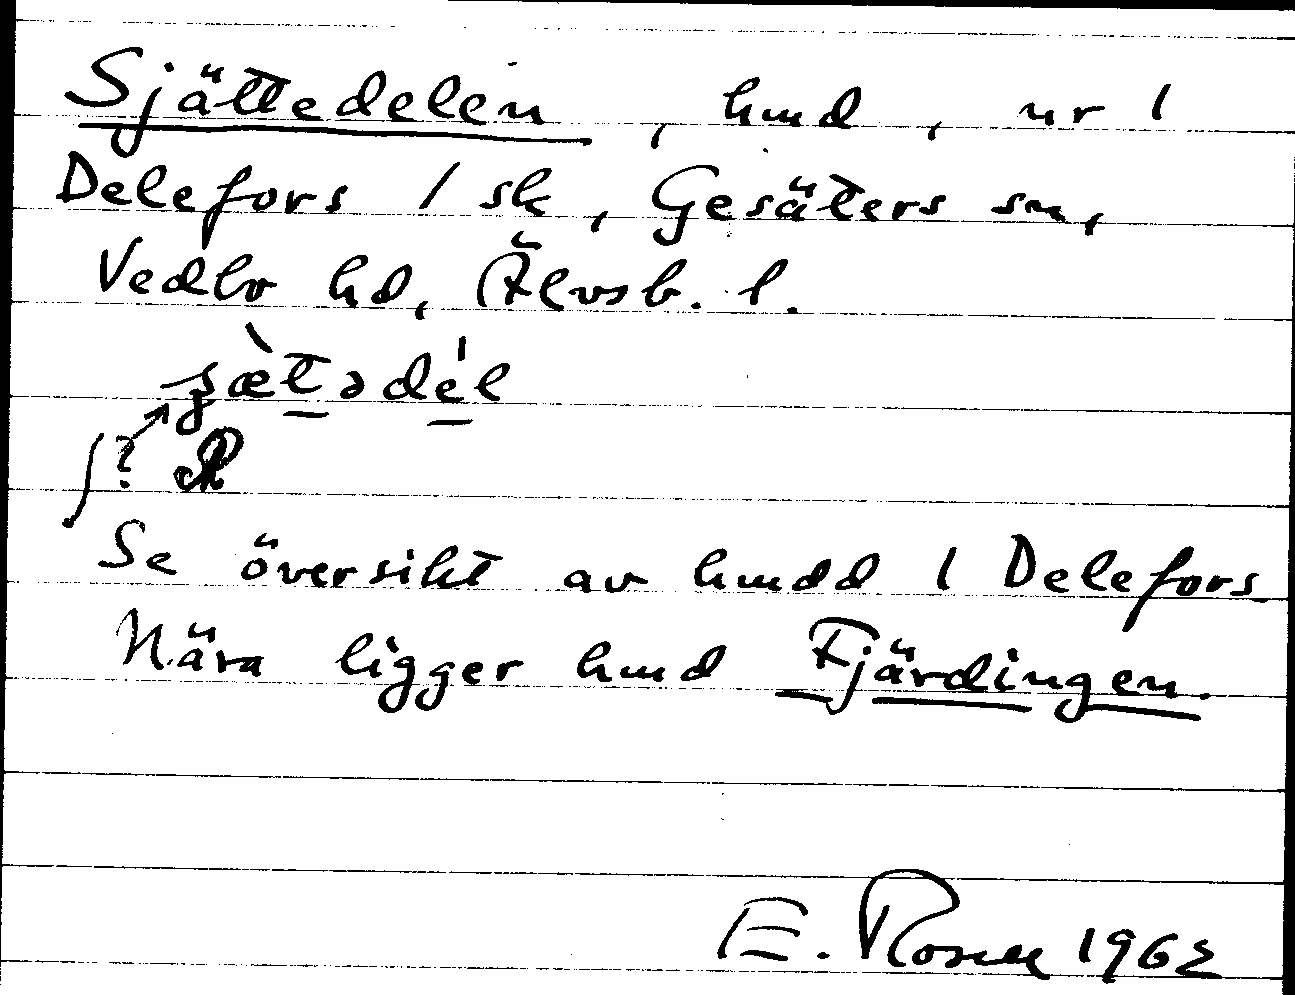 Sjättedelen, hmd, nr 1
Delefors 1 sk, Gesäters sn,
Vedbo hd, Älvsb. l.
ʃæ̀tədél
ʃ?
Se översikt av hmdd 1 Delefors
Nära ligger hmd Fjärdingen.
E. Rosell 1962